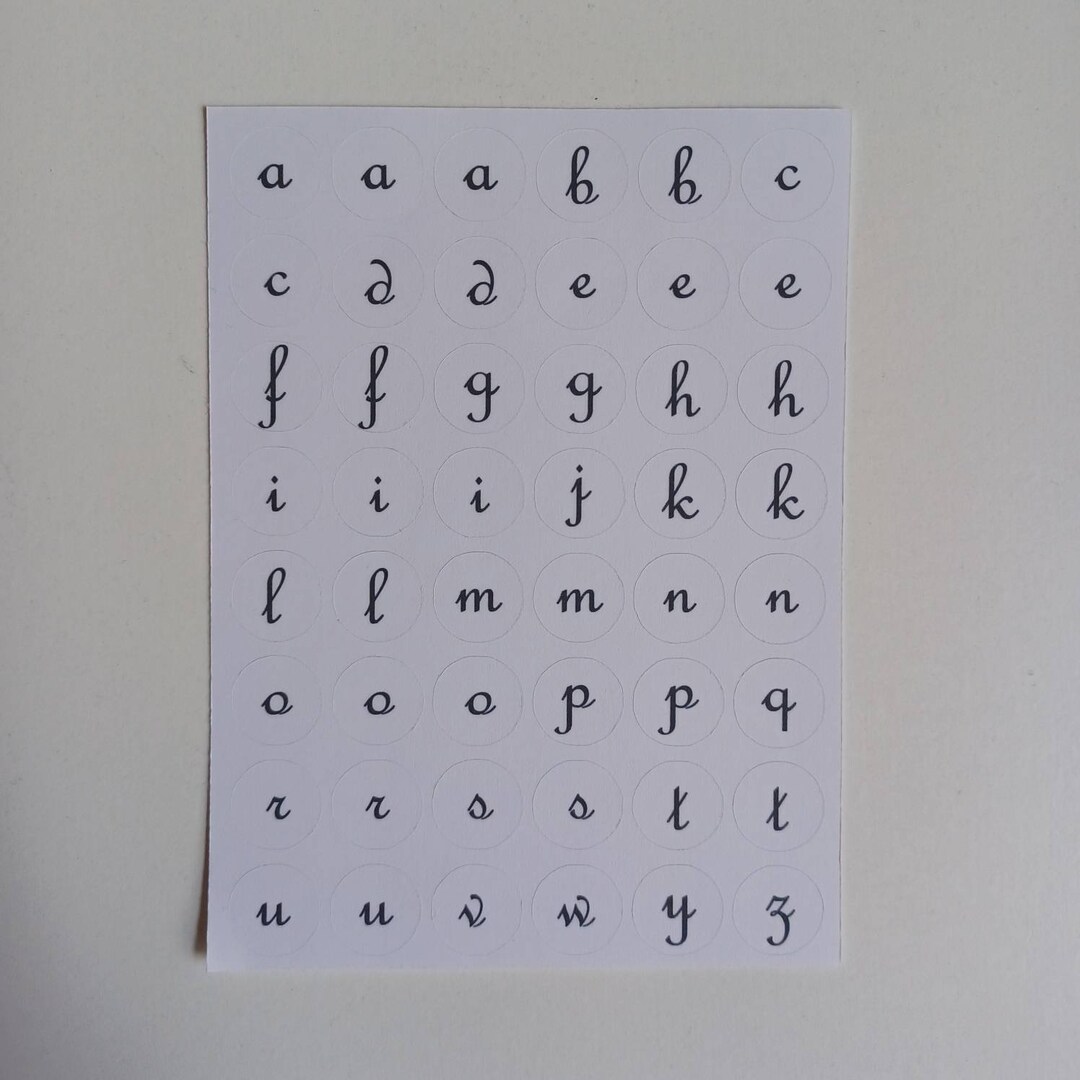 a a a b b c
c d d e e e
f f g g h h
i i i j k k
l l m m n n
o o o p p q
r r s s t t
u u v w y z